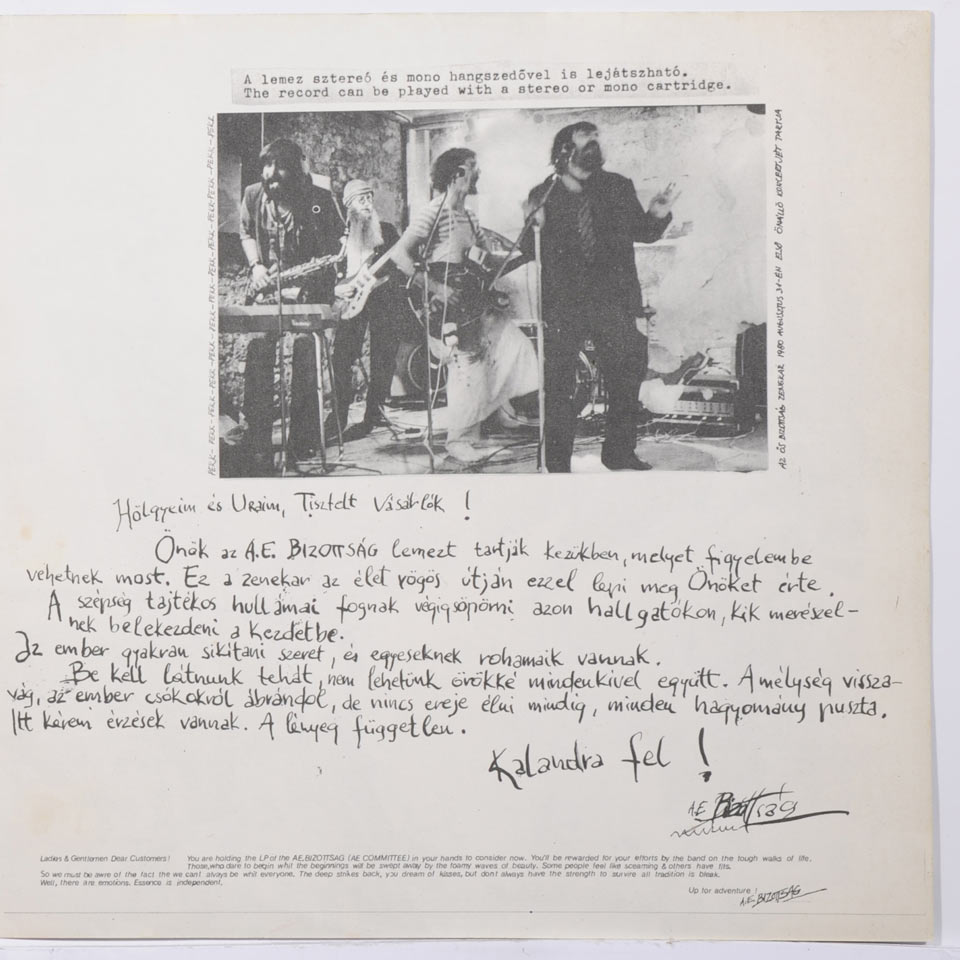 A lemez sztereó és mono hangszedővel is lejátszható.
The record can be played with a stereo or mono cartridge.
PERK-PERK-PERK-PERK-PERK-PERK-PERK-PERK-PERK-PERK
AZ ŐS BIZOTTSÁG ZENEKAR 1980 AUGUSZTUS 31-ÉN ELSŐ ÖNÁLLÓ KONCERTJÉT TARTJA
Hölgyeim és Uraim, Tisztelt Vásárlók !
Önök az A.E. BIZOTTSÁG lemezt tartják kezükben, melyet figyelembe
vehetnek most. Ez a zenekar az élet rögös útján ezzel lepi meg Önöket érte.
A szépség tajtékos hullámai fognak végigsöpörni azon hallgatókon, kik merészel-
nek belekezdeni a kezdetbe.
Az ember gyakran sikítani szeret, és egyeseknek rohamaik vannak.
Be kell látnunk tehát, nem lehetünk örökké mindenkivel együtt. A mélység vissza-
vág, az ember csókokról ábrándol, de nincs ereje élni mindig, minden hagyomány puszta.
Itt kérem érzések vannak. A lényeg független.
Kalandra fel !
A.E. Bizottság
Ladies & Gentlemen Dear Customers! You are holding the LP of the AE.BIZOTTSAG (AE COMMITTEE) in your hands to consider now. You'll be rewarded for your efforts by the band on the tough walks of life.
Those,who dare to begin whit the beginnings will be swept away by the foamy waves of beauty. Some people feel like screaming & others have fits.
So we must be awre of the fact the we cant always be whit everyone. The deep strikes back, you dream of kisses, but dont always have the strength to survire all tradition is bleak.
Well, there are emotions. Essence is independent.
Up for adventure !
A.E. BIZOTTSÁG